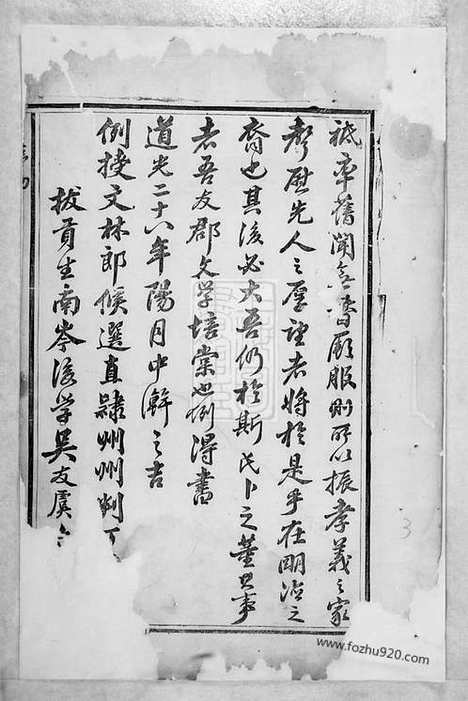 祗率舊聞無替厥服則所以振孝義之家
聲慰先人之屬望者將於是乎在明德之
裔也其後必大吾仍於斯氏卜之董其事
者吾友郡文學培棠也例得書
道光二十八年陽月中澣之吉
例授文林郎候選直隸州州判
拔貢生南岑後學吳友虞
3
www.fozhu920.com